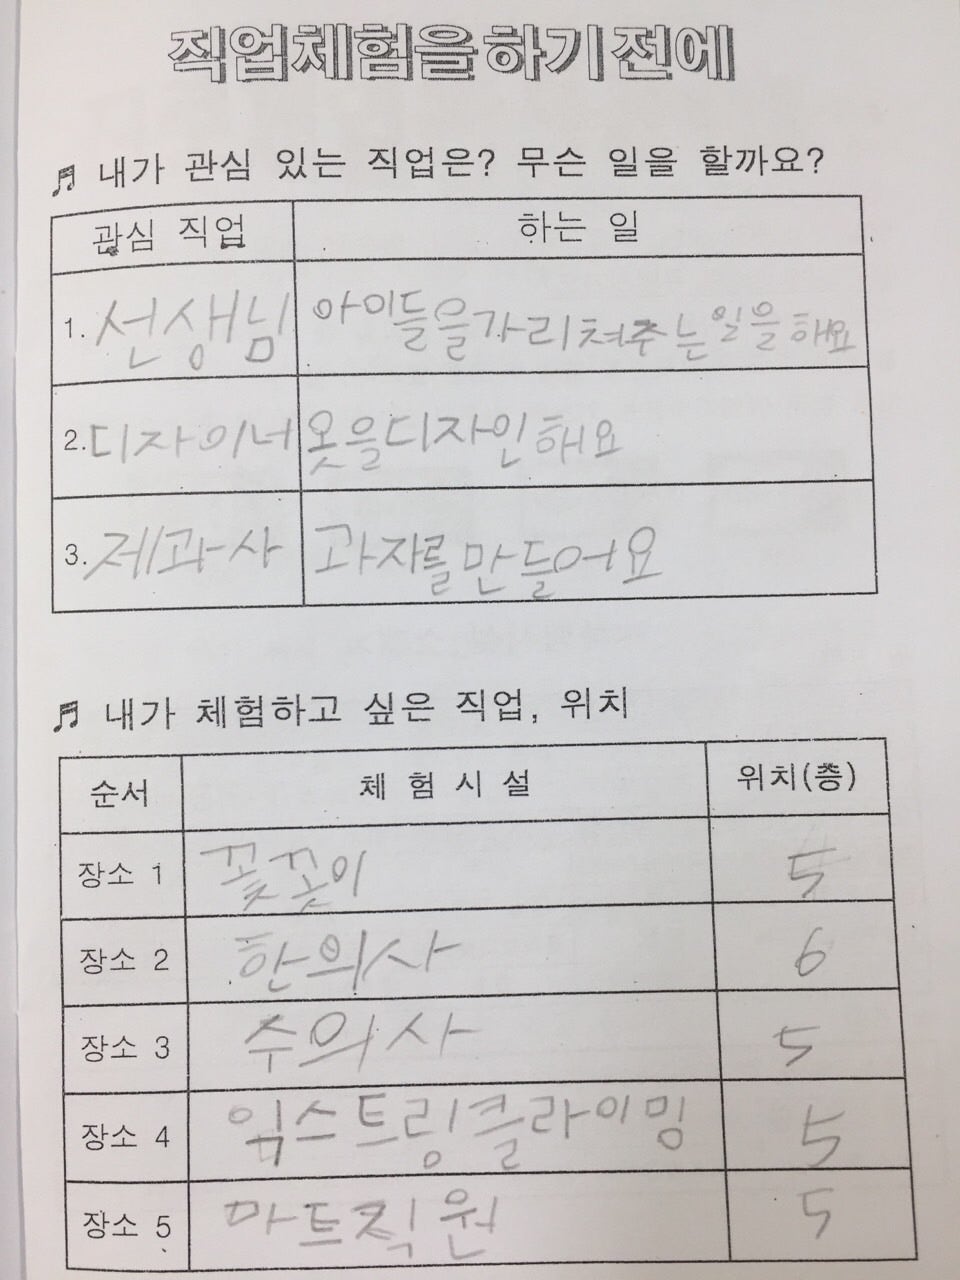 직업체험을하기전에
♬ 내가 관심 있는 직업은? 무슨 일을 할까요?
관심 직업 하는 일
1. 선생님 아이들을가리쳐주는일을해요
2. 디자이너 옷을디자인해요
3. 제과사 과자를만들어요
♬ 내가 체험하고 싶은 직업, 위치
순서 체험시설 위치(층)
장소 1 꽃꽂이 5
장소 2 한의사 6
장소 3 수의사 5
장소 4 익스트링클라이밍 5
장소 5 마트직원 5